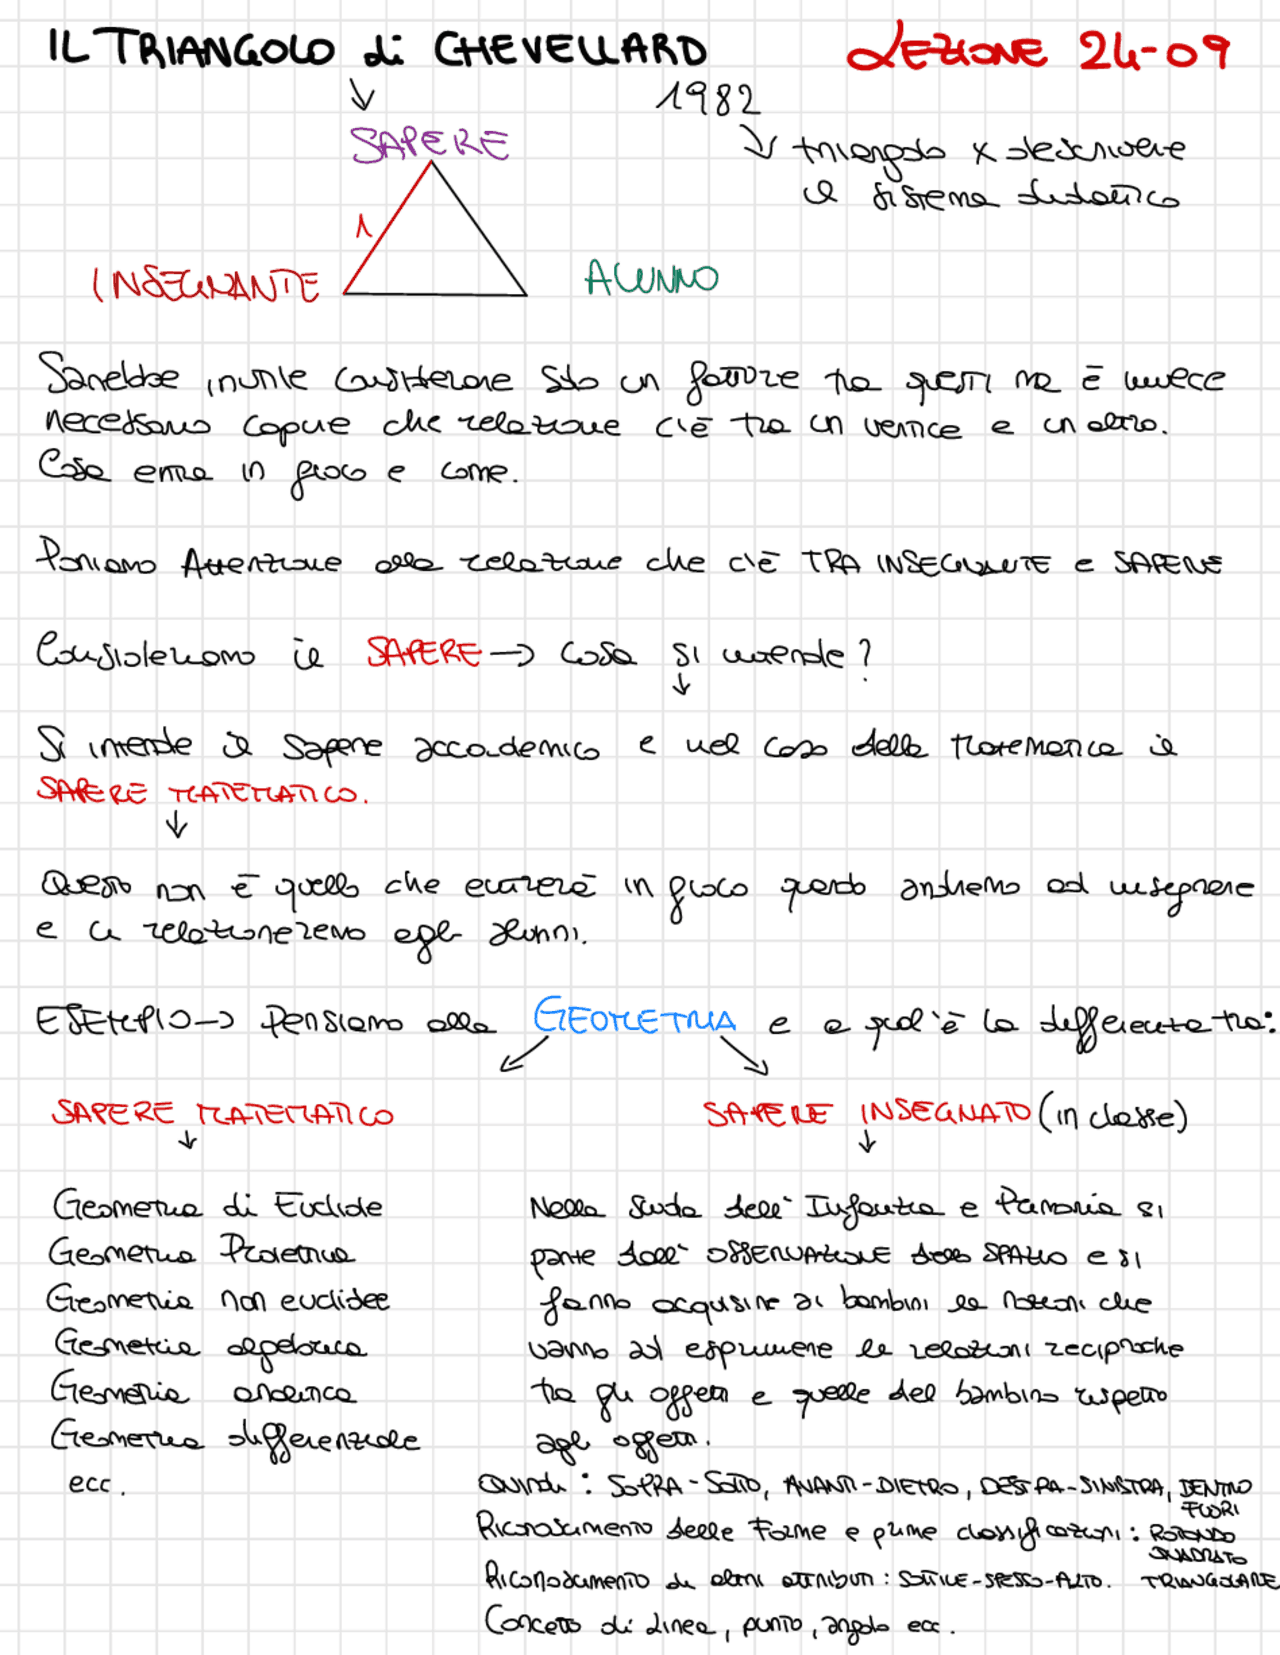 IL TRIANGOLO di CHEVELLARD
LEZIONE 24-09
1982
SAPERE
triangolo x descrivere
il sistema didattico
1
INSEGNANTE
ALUNNO
Sarebbe inutile considerare solo un fattore tra questi ma è invece
necessario capire che relazione c'è tra un vertice e un altro.
Cosa entra in gioco e come.
Poniamo Attenzione alla relazione che c'è TRA INSEGNANTE e SAPERE
Consideriamo il SAPERE → cosa si intende?
Si intende il sapere accademico e nel caso della matematica il
SAPERE MATEMATICO.
Questo non è quello che entrerà in gioco quando andremo ad insegnare
e ci relazioneremo agli alunni.
ESEMPIO → pensiamo alla GEOMETRIA e a qual'è la differenza tra:
SAPERE MATEMATICO
SAPERE INSEGNATO (in classe)
Geometria di Euclide
Geometria Proiettiva
Geometria non euclidee
Geometria algebrica
Geometria analitica
Geometria differenziale
ecc.
Nella Scuola dell'Infanzia e Primaria si
parte dall'OSSERVAZIONE dello SPAZIO e si
fanno acquisire ai bambini le nozioni che
vanno ad esprimere le relazioni reciproche
tra gli oggetti e quelle del bambino rispetto
agli oggetti.
Quindi: SOPRA-SOTTO, AVANTI-DIETRO, DESTRA-SINISTRA, DENTRO
FUORI
Riconoscimento delle forme e prime classificazioni: ROTONDO
QUADRATO
TRIANGOLARE
Riconoscimento di altri attributi: SOTTILE-SPESSO-ALTO.
Concetto di linea, punto, angolo ecc.